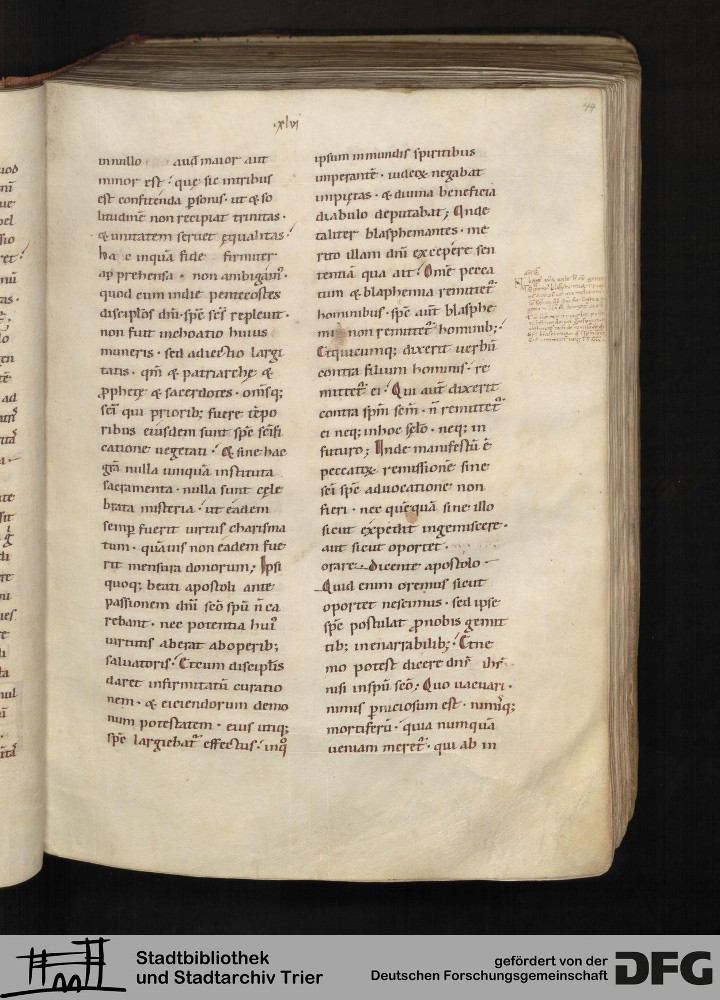 ·xlvi
44
in nullo aut̄ maior aut
minor est· quę sic in tribus
est confitenda p̱sonis· ut & so
litudinē non recipiat trinitas·
& unitatem seruet ęqualitas·
hac inquā fide firmiter
apprehensa· non ambigam᷒·
quod cum in die pentecostes
discip̄los dn̄i· sp̄c sc̄s repleuit·
non fuit inchoatio huius
muneris· sed adiectio largi
tatis· qm̄ & patriarchę &
ꝓphetę & sacerdotes· om̄sq;
sc̄i qui priorib; fuere tēpo
ribus eiusdem sunt sp̄c sc̄ifi
catione uegetati· & sine hac
gr̄a nulla umquā instituta
sacramenta· nulla sunt cęle
brata misteria· ut eadem
semp̱ fuerit uirtus charisma
tum· quāuis non eadem fue
rit mensura donorum; Ipsi
quoq; beati apostoli ante
passionem dn̄i sc̄o sp̄u n̄ ca
rebant· nec potentia hui᷒
uirtutis aberat ab operib;
saluatoris· Et cum discip̄lis
daret infirmitatū curatio
nem· & eiciendorum demo
num potestatem· eius utiq;
sp̄c largiebat᷒ effectus· in q͡o
ipsum inmundis spiritibus
imperantē· iudeoꝝ negabat
impietas· & diuina beneficia
diabulo deputabat; Unde
taliter blasphemantes· me
rito illam dn̄i excepere sen
tentiā qua ait· Om̄e pecca
tum & blaphemia remittet᷒
hominibus· sp̄c aut̄ blasphe
mia non remittet᷒ hominib;·
Et quicumq; dixerit uerbū
contra filium hominis· re
mittet᷒ ei· Qui aut̄ dixerit
contra sp̄m sc̄m· n̄ remittet᷒
ei neq; in hoc sc̄lo· neq; in
futuro; Unde manifestū ē
peccatoꝝ remissionē sine
sc̄i sp̄c aduocatione non
fieri· nec quęquā sine illo
sicut expedit ingemiscere·
aut sicut oportet·
orare dicente apostolo
Quid enim oremus sicut
oportet nescimus· sed ipse
sp̄c postulat ꝓ nobis gemit
tib; inenarrabilib;· Et ne
mo potest dicere dn̄s ih̄s
nisi in sp̄u sc̄o; Quo uacuari·
nimis p̱niciosum est· nimiq;
mortiferū· quia numquā
ueniam meret᷒· qui ab in
Stadtbibliothek
und Stadtarchiv Trier
gefördert von der
Deutschen Forschungsgemeinschaft
DFG